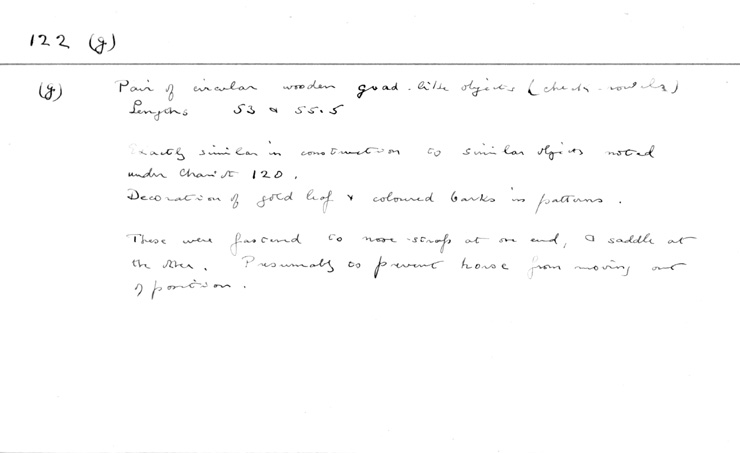 122 (g)
(g) Pair of circular wooden goad-like objects (check-rowels)
Lengths 53 & 55.5
Exactly similar in construction to similar objects noted
under Chariot 120.
Decoration of gold leaf & coloured barks in patterns.
These were fastened to nose-straps at one end, & saddle at
the other. Presumably to prevent horse from moving out
of position.